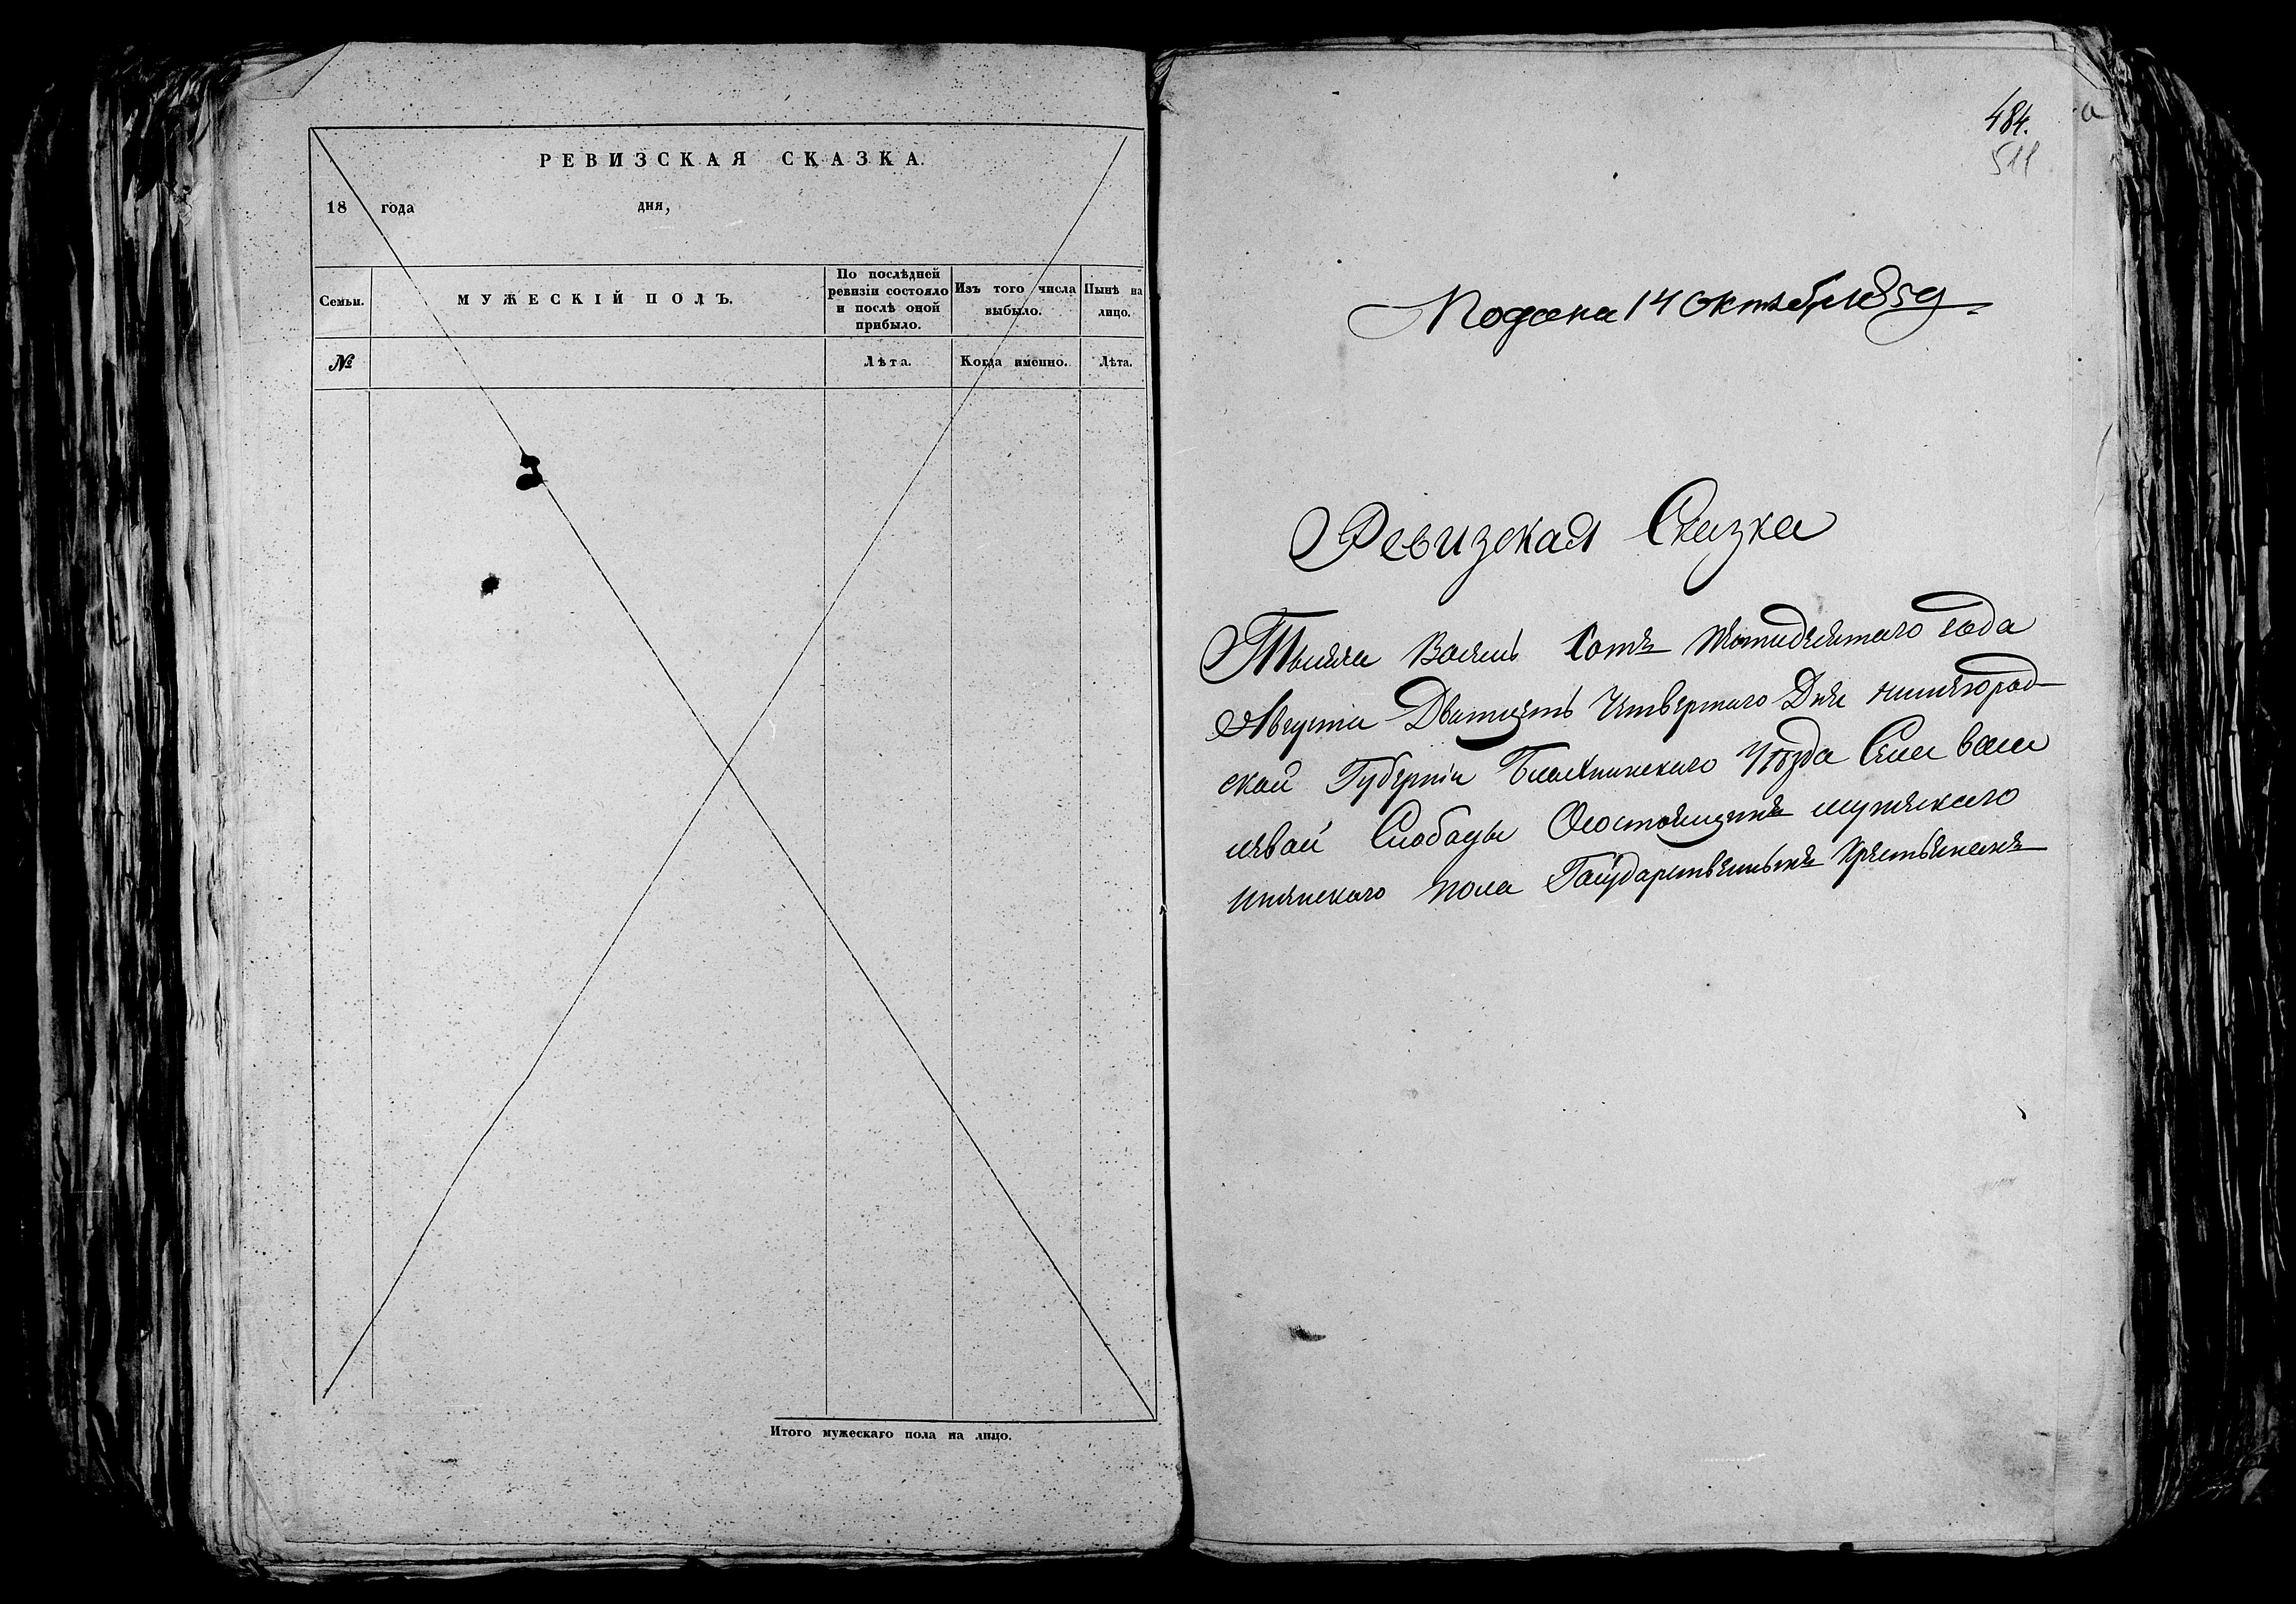 РЕВИЗСКАЯ СКАЗКА.
18 года дня,
Семьи. МУЖЕСКІЙ ПОЛЪ. По послѣдней ревизіи состояло и послѣ оной прибыло. Изъ того числа выбыло. Нынѣ на лицо.
№ Лѣта. Когда именно. Лѣта.
Итого мужескаго пола на лицо.
484.
511
Подана 14 Октября 1859
Ревизская Сказка
Тысяча Восемь Сотъ Пятидесятаго года
Августа Дватцеть Четвертаго Дня нижегород-
ской Губерніи Балахнинскаго Уѣзда Села
левой Слободы О состоящихъ мужескаго
женскаго пола Государственныхъ Крестьянахъ